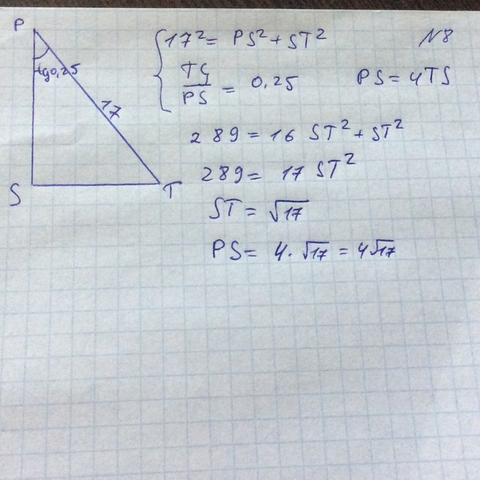 P
tg0,25
17
S
T
17² = PS² + ST²
№8
TS/PS = 0,25
PS = 4TS
289 = 16 ST² + ST²
289 = 17 ST²
ST = √17
PS = 4 · √17 = 4√17